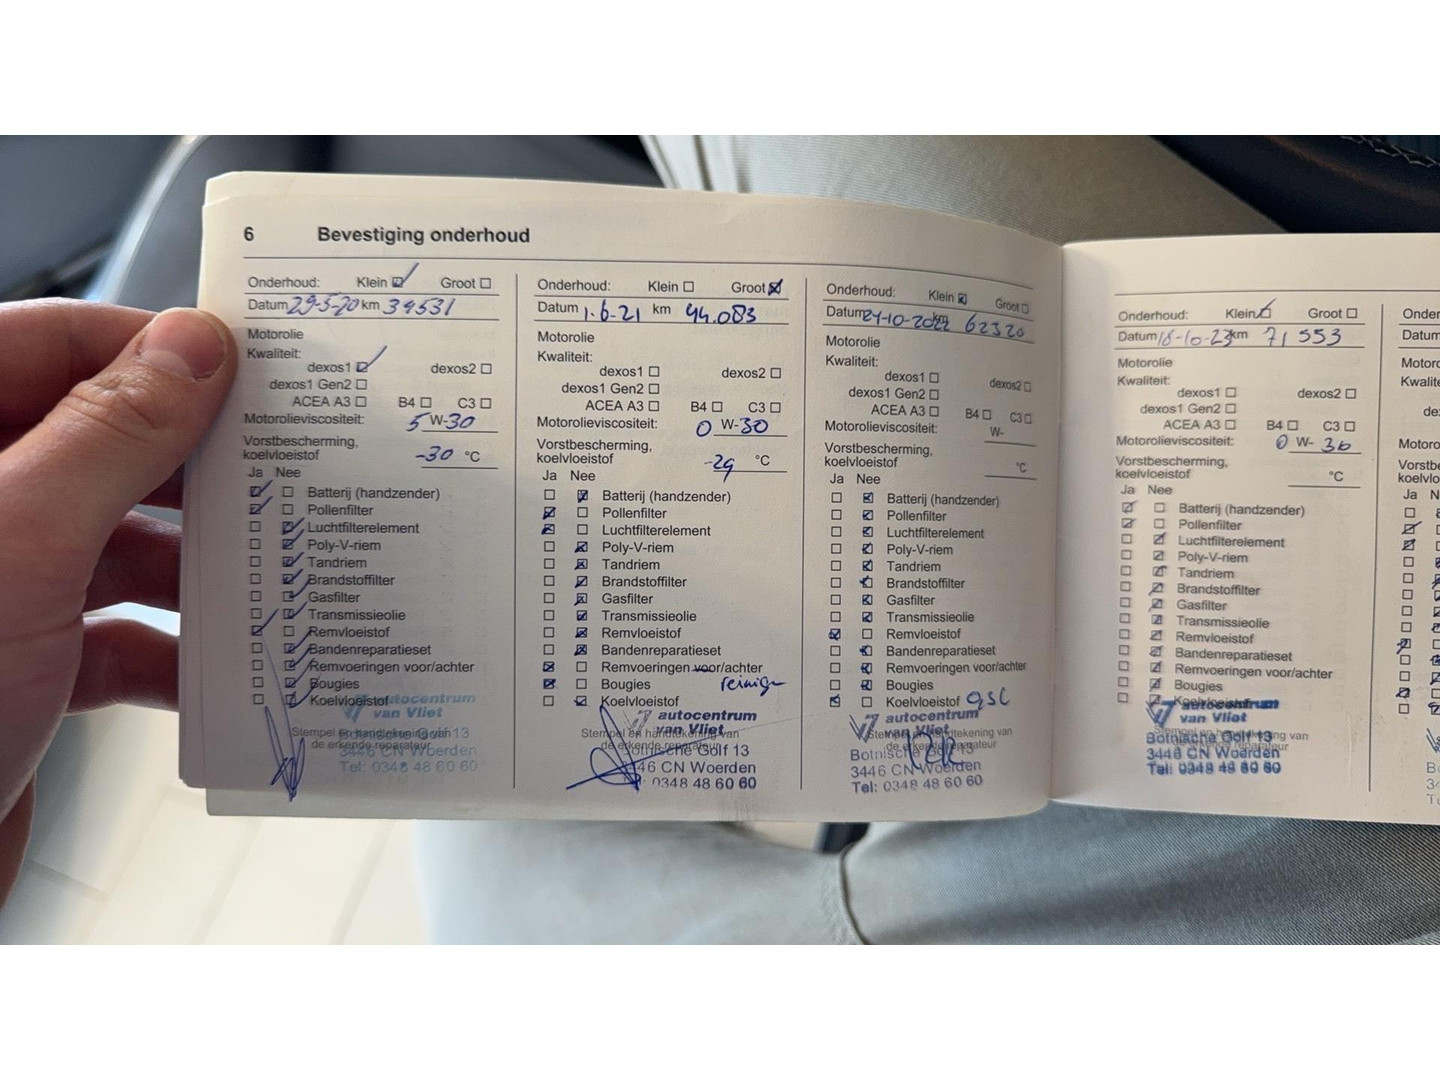 6 Bevestiging onderhoud
Onderhoud: Klein Groot
Datum 29-5-20 km 34531
Motorolie
Kwaliteit:
dexos1 dexos2
dexos1 Gen2
ACEA A3 B4 C3
Motorolieviscositeit: 5 W-30
Vorstbescherming,
koelvloeistof -30 °C
Ja Nee
Batterij (handzender)
Pollenfilter
Luchtfilterelement
Poly-V-riem
Tandriem
Brandstoffilter
Gasfilter
Transmissieolie
Remvloeistof
Bandenreparatieset
Remvoeringen voor/achter
Bougies
Koelvloeistof
autocentrum
van Vliet
Stempel en handtekening van
de erkende reparateur
Botnische Golf 13
3446 CN Woerden
Tel: 0348 48 60 60
Onderhoud: Klein Groot
Datum 1-6-21 km 44.083
Motorolie
Kwaliteit:
dexos1 dexos2
dexos1 Gen2
ACEA A3 B4 C3
Motorolieviscositeit: 0 W-30
Vorstbescherming,
koelvloeistof -29 °C
Ja Nee
Batterij (handzender)
Pollenfilter
Luchtfilterelement
Poly-V-riem
Tandriem
Brandstoffilter
Gasfilter
Transmissieolie
Remvloeistof
Bandenreparatieset
Remvoeringen voor/achter
Bougies reinigen
Koelvloeistof
autocentrum
van Vliet
Stempel en handtekening van
de erkende reparateur
Botnische Golf 13
46 CN Woerden
0348 48 60 60
Onderhoud: Klein Groot
Datum 24-10-2022 km 62320
Motorolie
Kwaliteit:
dexos1 dexos2
dexos1 Gen2
ACEA A3 B4 C3
Motorolieviscositeit: W-
Vorstbescherming,
koelvloeistof °C
Ja Nee
Batterij (handzender)
Pollenfilter
Luchtfilterelement
Poly-V-riem
Tandriem
Brandstoffilter
Gasfilter
Transmissieolie
Remvloeistof
Bandenreparatieset
Remvoeringen voor/achter
Bougies
Koelvloeistof
autocentrum
van Vliet
Stempel en handtekening van
de erkende reparateur
Botnische Golf 13
3446 CN Woerden
Tel: 0348 48 60 60
Onderhoud: Klein Groot
Datum 18-10-23 km 71553
Motorolie
Kwaliteit:
dexos1 dexos2
dexos1 Gen2
ACEA A3 B4 C3
Motorolieviscositeit: 0 W-30
Vorstbescherming,
koelvloeistof °C
Ja Nee
Batterij (handzender)
Pollenfilter
Luchtfilterelement
Poly-V-riem
Tandriem
Brandstoffilter
Gasfilter
Transmissieolie
Remvloeistof
Bandenreparatieset
Remvoeringen voor/achter
Bougies
Koelvloeistof
autocentrum
van Vliet
Botnische Golf 13
3446 CN Woerden
Tel: 0348 48 60 60
Onder
Datum
Ja N